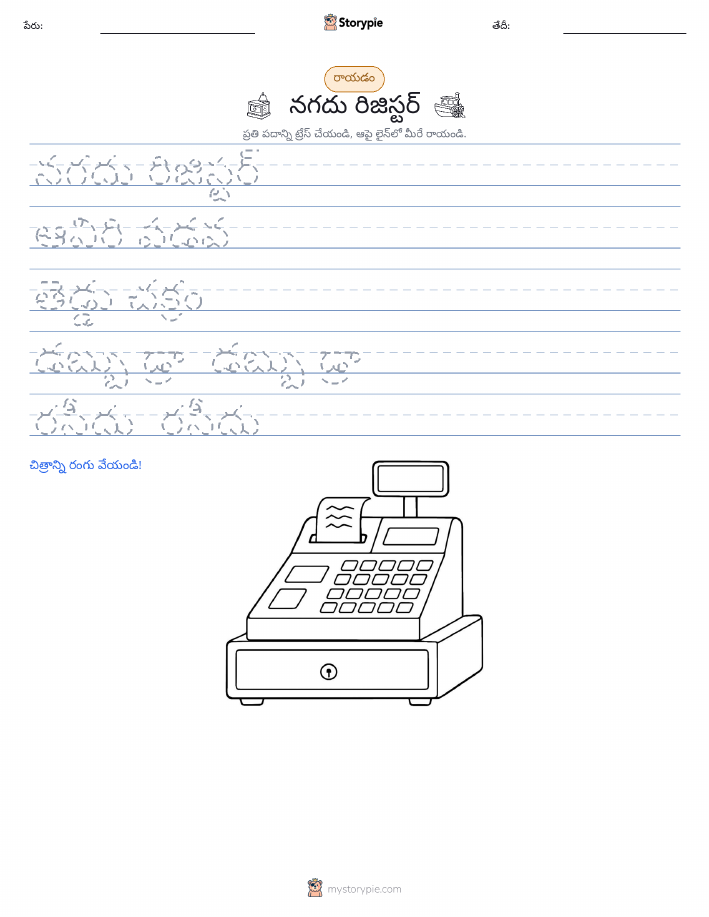 పేరు:
Storypie
తేదీ:
రాయడం
నగదు రిజిస్టర్
ప్రతి పదాన్ని ట్రేస్ చేయండి, ఆపై లైన్‌లో మీరే రాయండి.
నగదు రిజిస్టర్
ఆవిరి పడవ
తెడ్డు చక్రం
డబ్బు డ్రా డబ్బు డ్రా
రసీదు రసీదు
చిత్రాన్ని రంగు వేయండి!
mystorypie.com